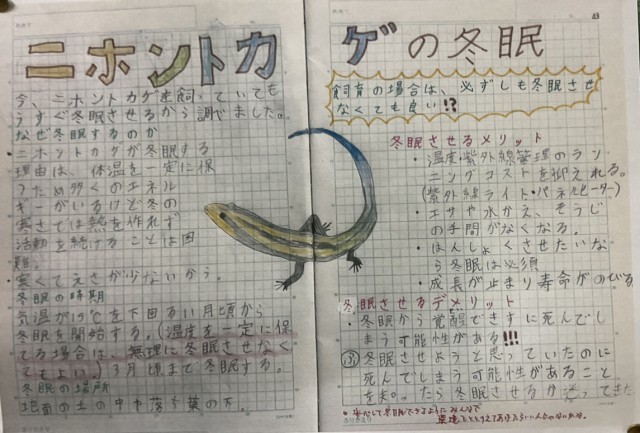 ニホントカゲの冬眠
今、ニホントカゲを飼っていても
うすぐ冬眠させるから調べました。
なぜ冬眠するのか
ニホントカゲが冬眠する
理由は、体温を一定に保
つため多くのエネル
ギーがいるけど冬の
寒さでは熱を作れず
活動を続けることは困
難。
・寒くてえさが少ないから。
冬眠の時期
気温が15℃を下回る11月頃から
冬眠を開始する。(温度を一定に保
てる場合は、無理に冬眠させなく
てもよい。)3月頃まで冬眠する。
冬眠の場所
地面の土の中や落ち葉の下。
33
飼育の場合は、必ずしも冬眠させ
なくても良い!?
冬眠させるメリット
・温度・紫外線管理のラン
ニングコストを抑えれる。
(紫外線ライト・パネルヒーター)
・エサや水かえ、そうじ
の手間がなくなる。
・はんしょくさせたいな
ら冬眠は必須
・成長が止まり寿命がのびる
冬眠させるデメリット
・冬眠から覚醒できずに死んでし
まう可能性がある!!!
冬眠させようと思っていたのに
死んでしまう可能性があること
を知ったら冬眠させるか迷ってきた